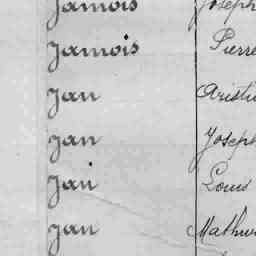 Jamois Joseph
Jamois Pierre
Jan
Jan Joseph
Jan Louis
Jan